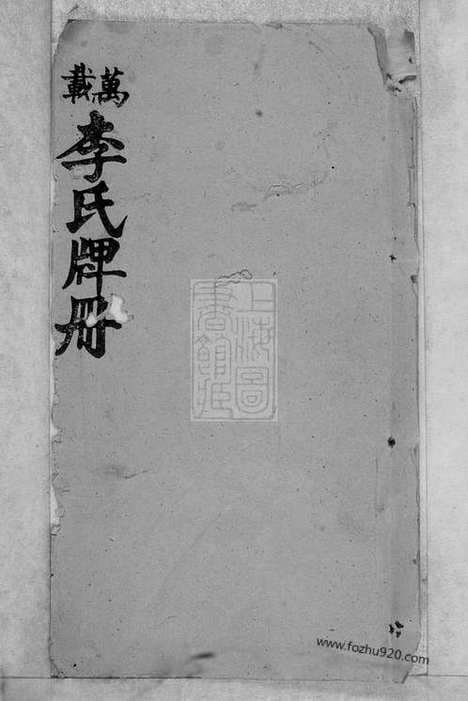 萬載
李氏牌冊
上海圖
書館藏
www.fozhu920.com